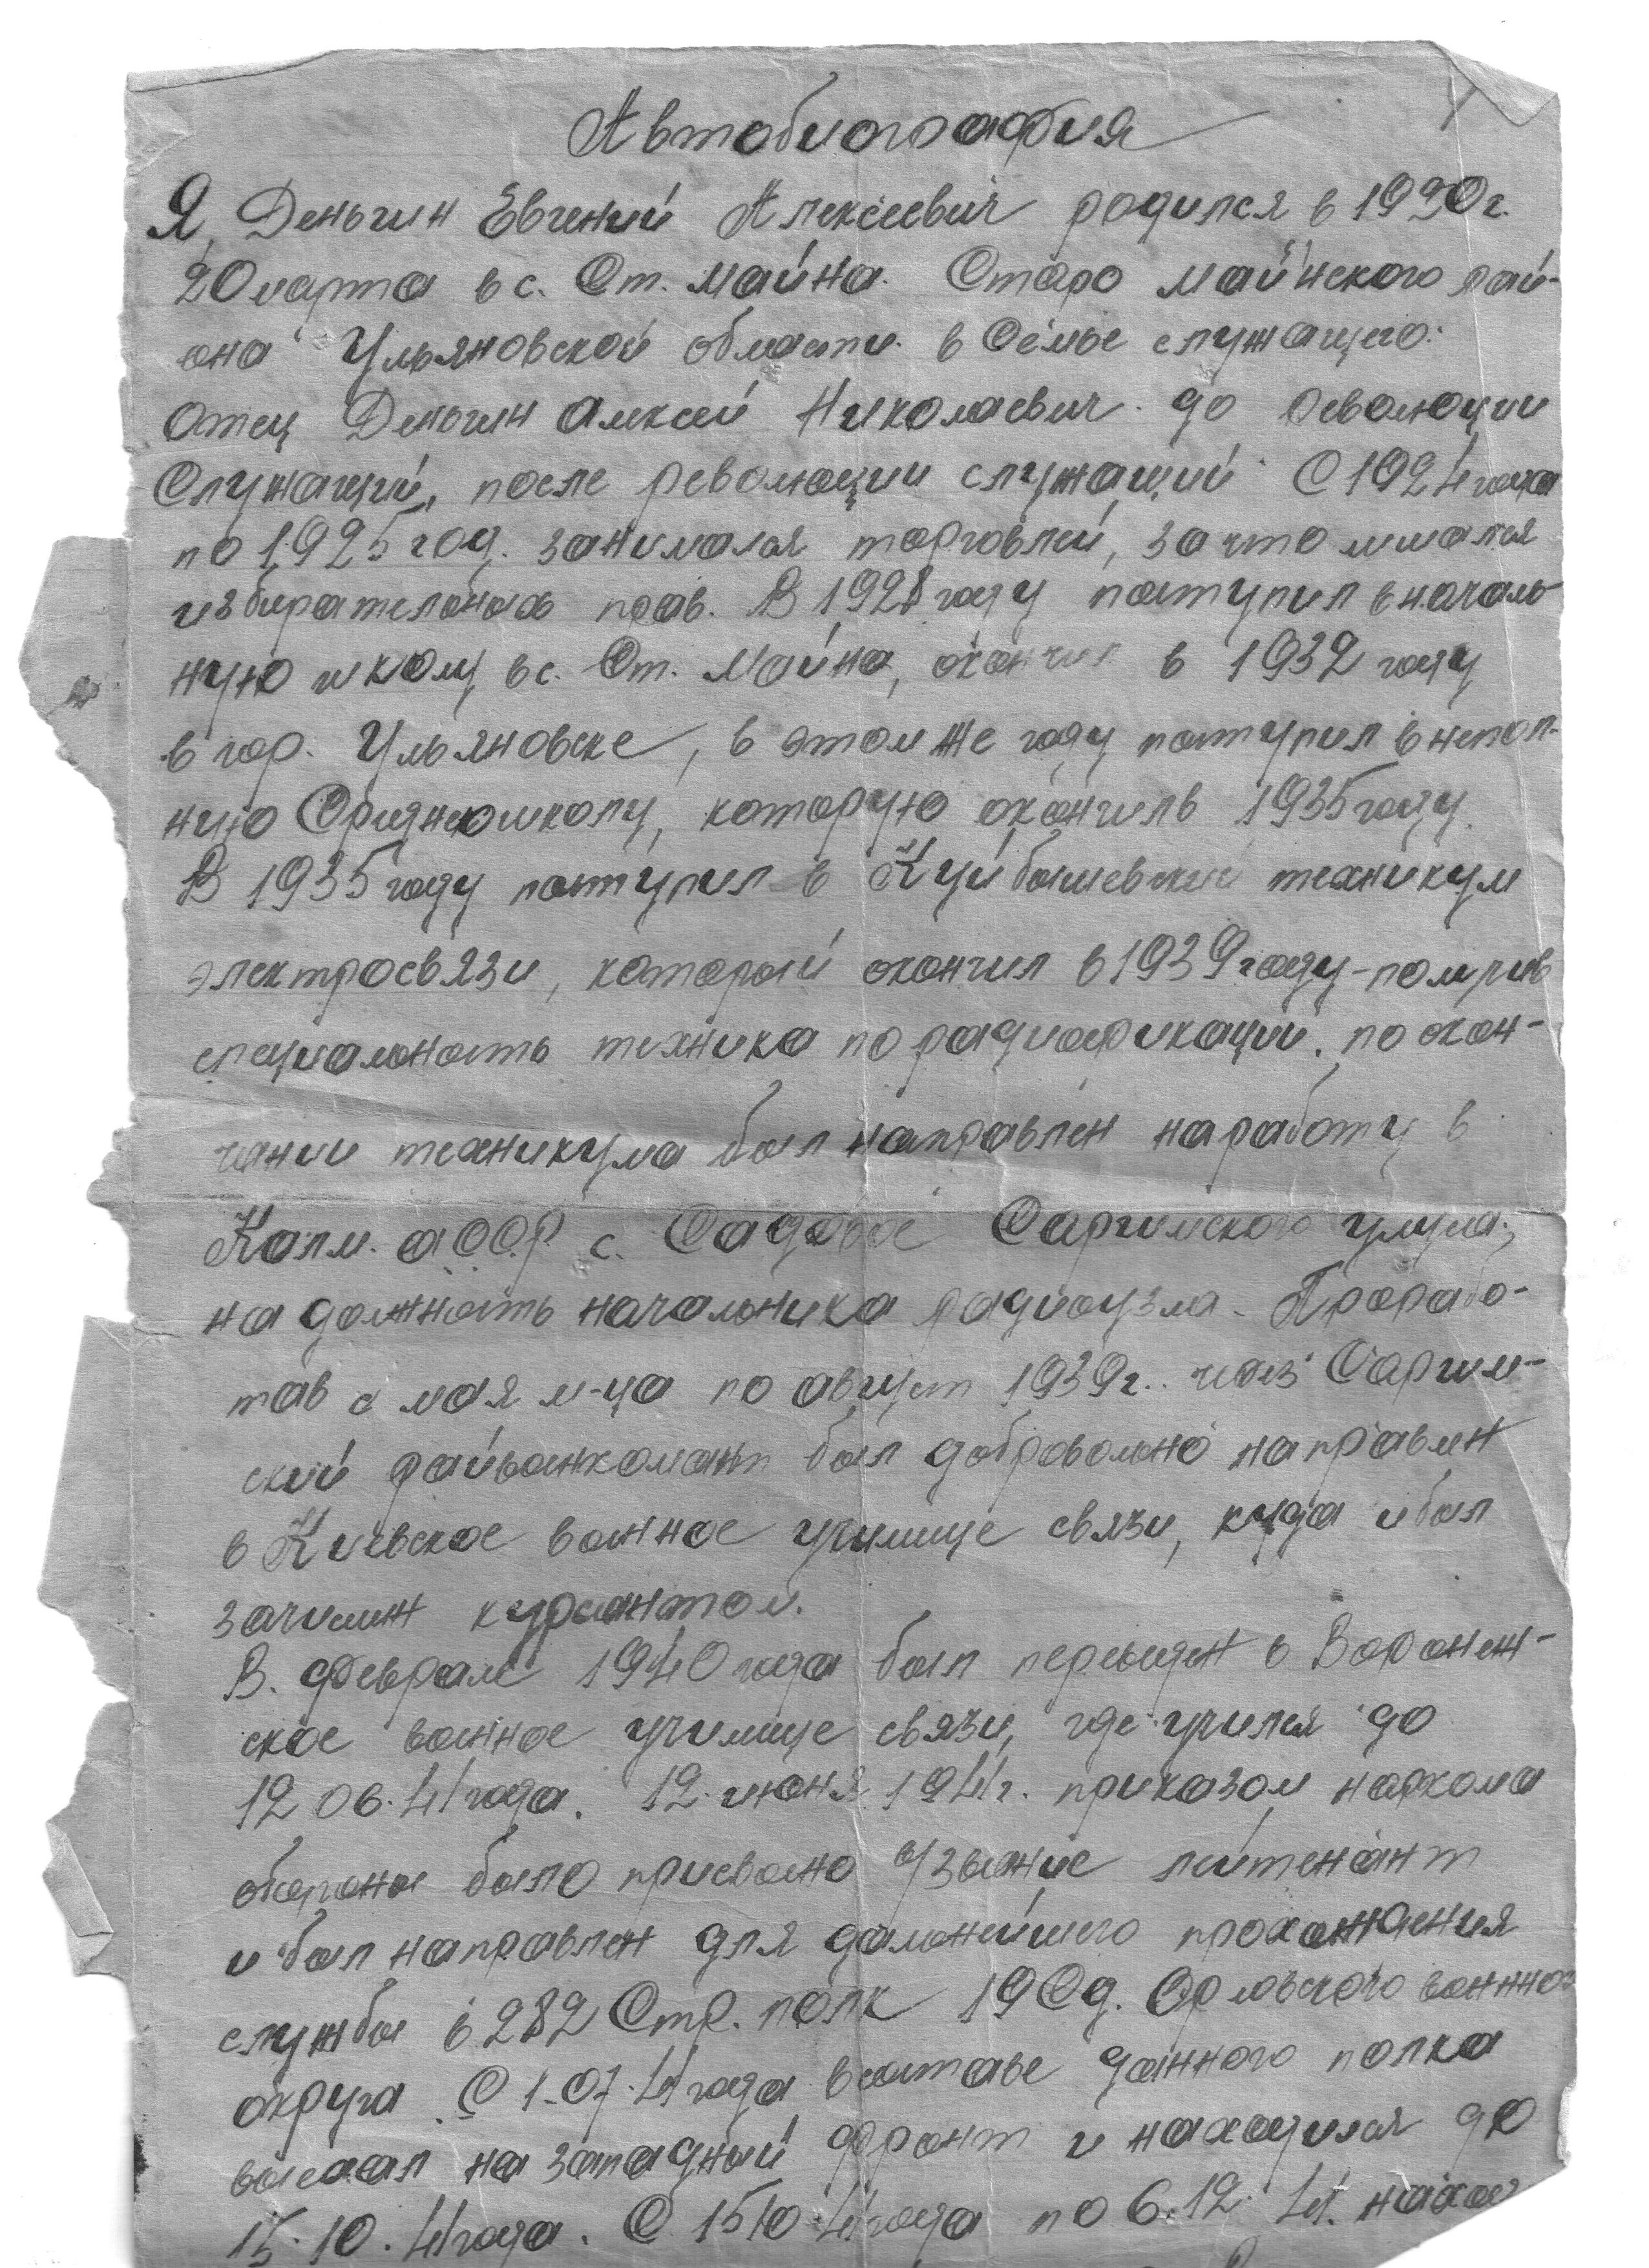 Автобиография
Я, Деньгин Евгений Алексеевич родился в 1920 г.
20 марта в с. Ст. Майна. Старо Майнского рай-
она Ульяновской области в семье служащего.
Отец Деньгин Алексей Николаевич до революции
Служащий, после революции служащий С 1924 года
по 1925 год. занимался торговлей, за что лишался
избирательных прав. В 1928 году поступил в началь
ную школу в с. Ст. Майна, окончил в 1932 году
в гор. Ульяновске, в этом же году поступил в непол-
ную Среднюю школу, которую окончил в 1935 году.
В 1935 году поступил в Куйбышевский техникум
электросвязи, который окончил в 1939 году - получив
специальность техника по радиофикации. по окон-
чании техникума был направлен на работу в
Калм. АССР с. Садовое Сарпинского улуса,
на должность начальника радиоузла. Прорабо-
тав с мая м-ца по август 1939 г. через Сарпин-
ский райвоенкомат был добровольно направлен
в Киевское военное училище связи, куда и был
зачислен курсантом.
В. феврале 1940 года был переведен в Воронеж-
ское военное училище связи, где учился до
12 06. 41 года. 12. июня 1941 г. приказом наркома
обороны было присвоено в/звание лейтенант
и был направлен для дальнейшего прохождения
службы в 282 Стр. полк 19 Сд. Орловского военного
округа. С 1.07.41 года в составе данного полка
выехал на западный фронт и находился до
15.10.41 года. С 15.10.41 года по 6.12.41. наход